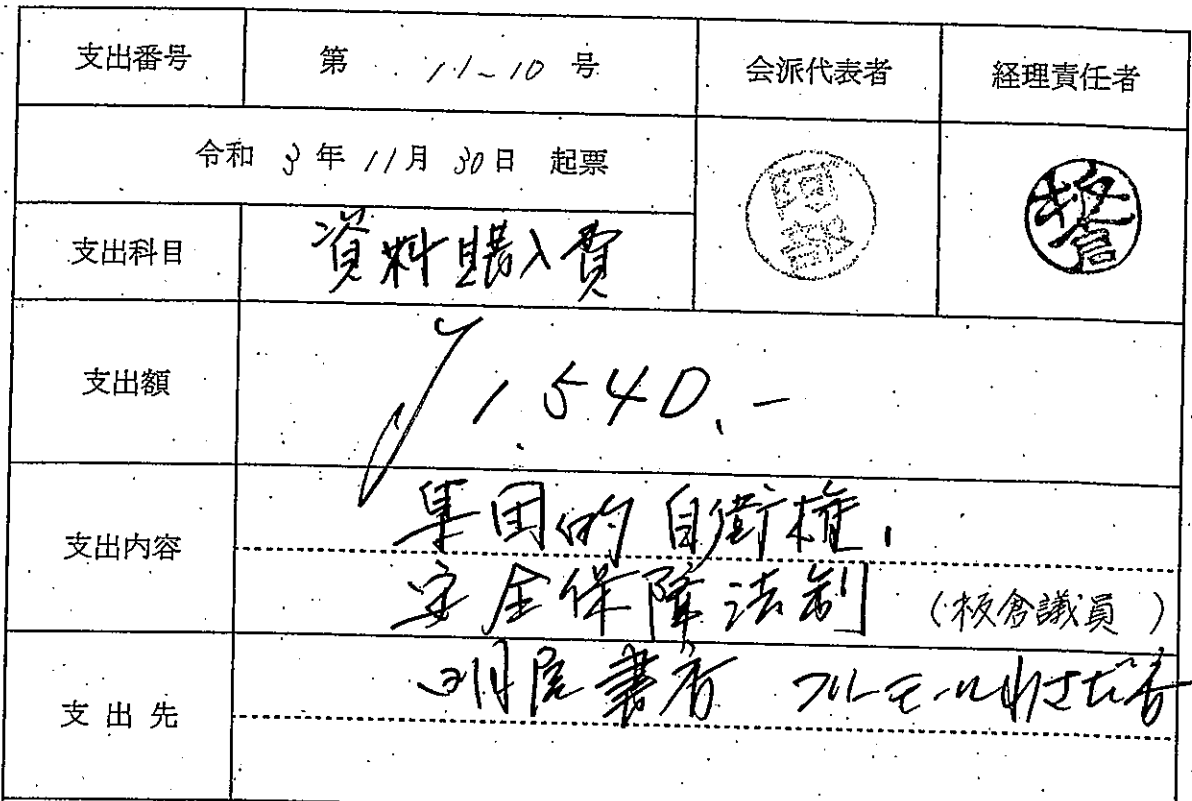 支出番号 第 11-10 号 会派代表者 経理責任者
令和 3 年 11月 30日 起票
支出科目 資料購入費
支出額 ¥1,540.-
支出内容 集団的自衛権、
安全保障法制 (板倉議員)
支出先 明屋書店 フレーモールわさだ店